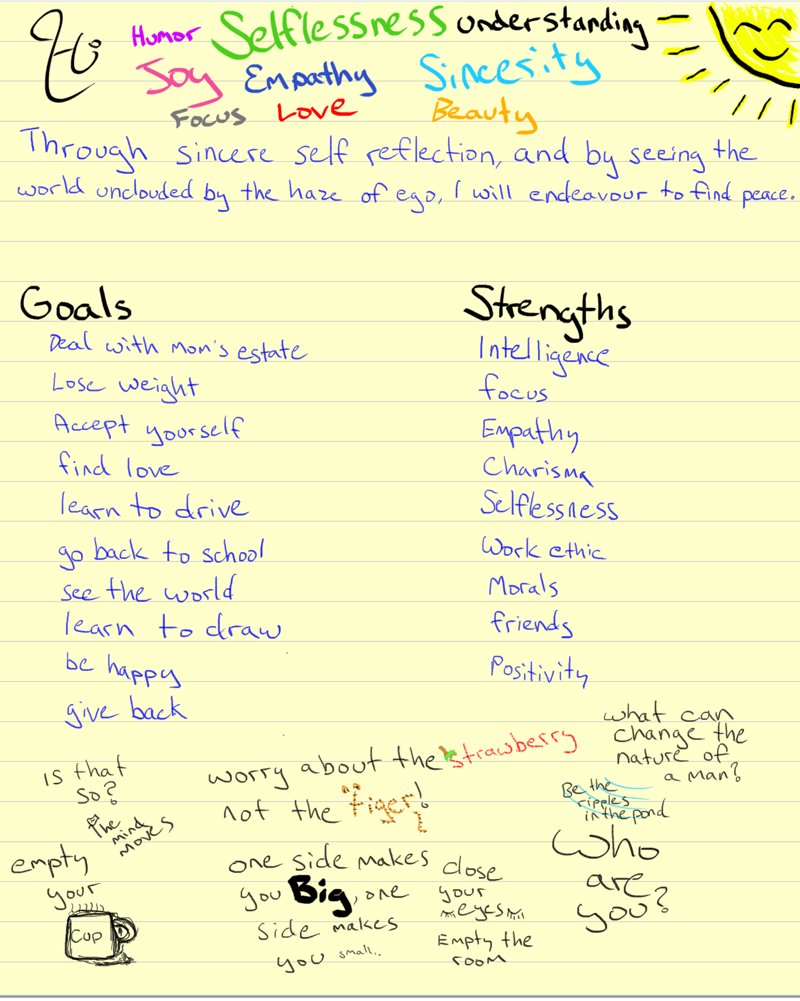 Hi
Humor Selflessness understanding
Joy Empathy Sincerity
Focus Love Beauty
Through sincere self reflection, and by seeing the
world unclouded by the haze of ego, I will endeavour to find peace.
Goals
Deal with Mom's estate
Lose weight
Accept yourself
find love
learn to drive
go back to school
see the world
learn to draw
be happy
give back
Strengths
Intelligence
focus
Empathy
Charisma
Selflessness
Work ethic
Morals
friends
Positivity
what can
change the
nature of
a man?
worry about the strawberry
not the tiger!
is that
so?
The
mind
moves
Be the
ripples
in the pond
empty
your
Cup
one side makes
you Big, one
side makes
you small..
close
your
eyes
Empty the
room
Who
are
you?